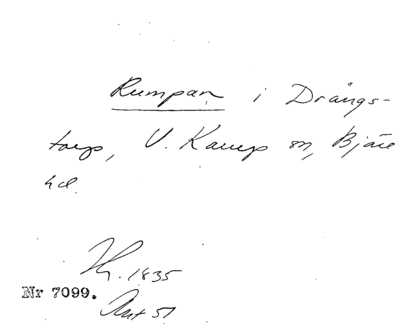 Rumpan i Drängs-
torp, V. Karup sn, Bjäre
hd.
1835
Nr 7099.
51